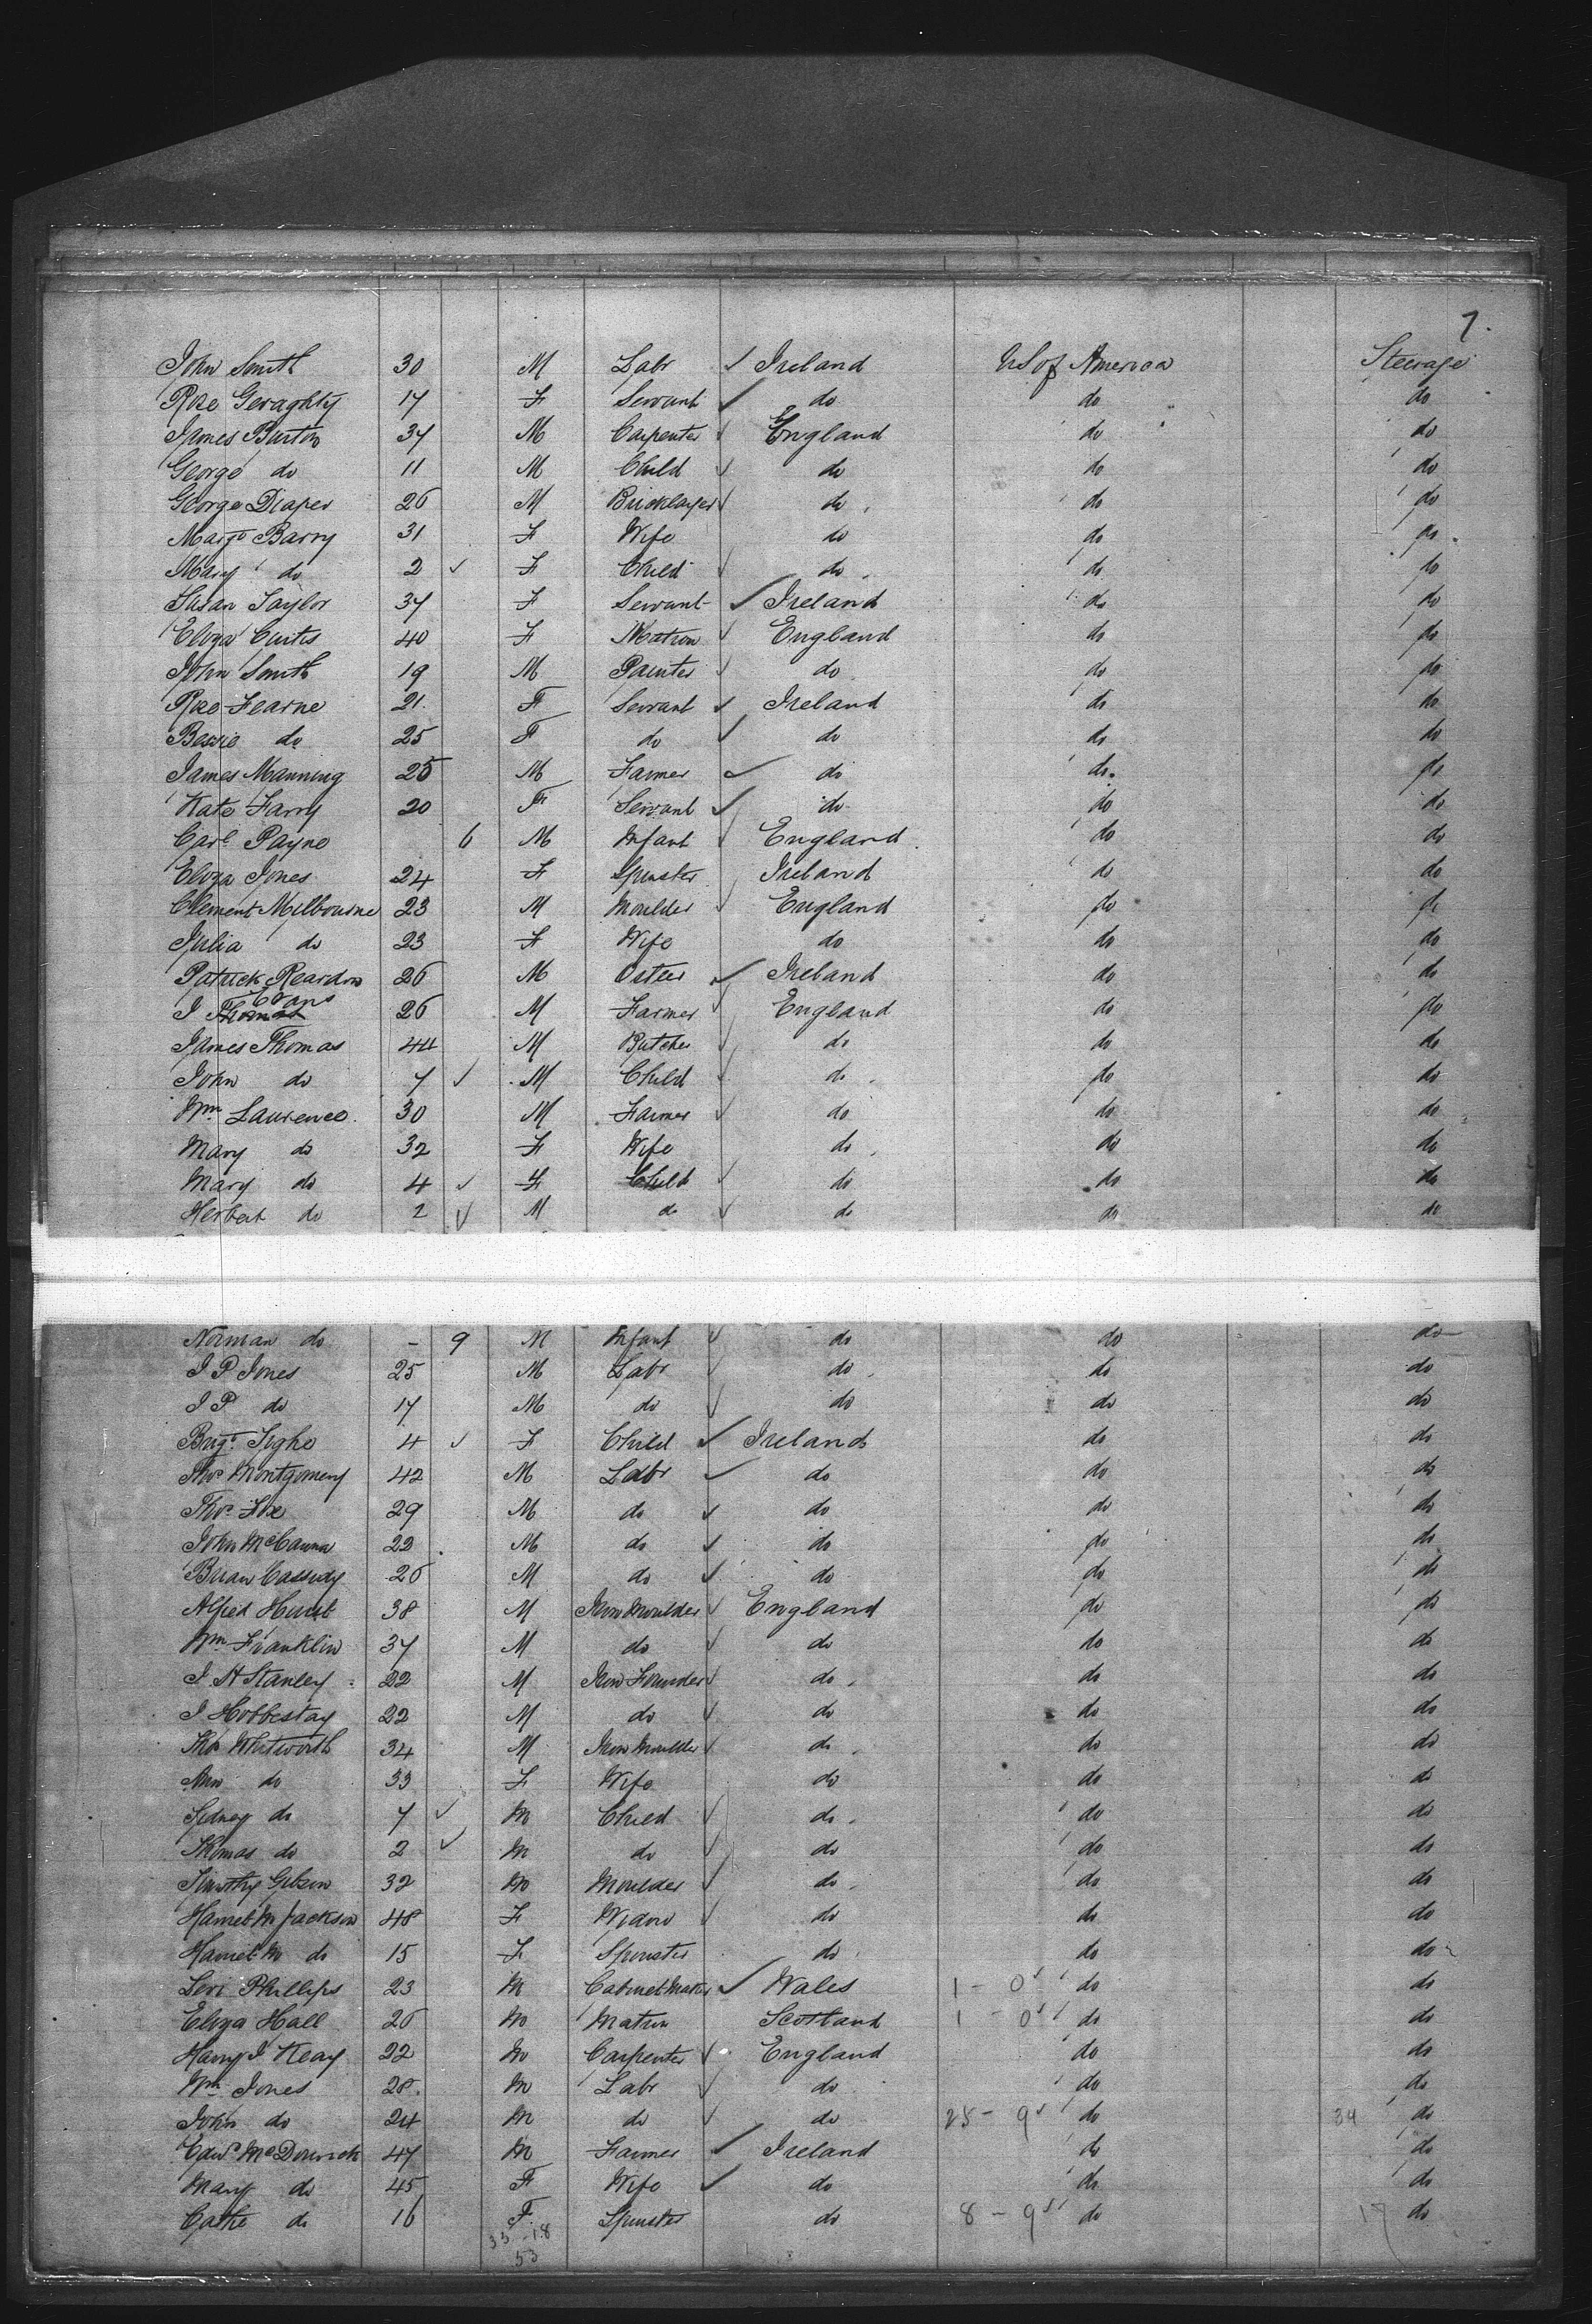 7.
John Smith 30 M Labr ✓ Ireland US of America Steerage
Rose Geraghty 17 F Servant ✓ do do do
James Burton 37 M Carpenter ✓ England do do
George do 11 M Child ✓ do do do
George Draper 26 M Bricklayer ✓ do do do
Margt Barry 31 F Wife do do do
Mary do 2 ✓ F Child ✓ do do do
Susan Taylor 37 F Servant ✓ Ireland do do
Eliza Curtis 40 F Matron ✓ England do do
John Smith 19 M Painter ✓ do do do
Rose Fearne 21 F Servant ✓ Ireland do do
Bessie do 25 F do ✓ do do do
James Manning 25 M Farmer ✓ do do do
Kate Farry 20 F Servant ✓ do do do
Carl Payne 6 M Infant ✓ England do do
Eliza Jones 24 F Spinster Ireland do do
Clement Milbourne 23 M Moulder ✓ England do do
Julia do 23 F Wife do do do
Patrick Reardon 26 M Ostler ✓ Ireland do do
J Evans 26 M Farmer ✓ England do do
James Thomas 44 M Butcher ✓ do do do
John do 7 ✓ M Child ✓ do do do
Wm Laurence 30 M Farmer ✓ do do do
Mary do 32 F Wife do do do
Mary do 4 ✓ F Child ✓ do do do
Herbert do 2 ✓ M do ✓ do do do
Norman do - 9 M Infant ✓ do do do
J P Jones 25 M Labr ✓ do do do
J P do 17 M do ✓ do do do
Brigt Tighe 4 ✓ F Child ✓ Ireland do do
Thos Montgomery 42 M Labr ✓ do do do
Thos Fox 29 M do ✓ do do do
John McCanna 22 M do ✓ do do do
Brian Cassidy 26 M do ✓ do do do
Alfred Hurst 38 M Iron Moulder ✓ England do do
Wm Franklin 37 M do ✓ do do do
J H Stanley 22 M Iron Founder ✓ do do do
J Hobbestay 22 M do ✓ do do do
Thos Whitworth 34 M Iron Moulder ✓ do do do
Ann do 33 F Wife do do do
Sydney do 7 ✓ M Child ✓ do do do
Thomas do 2 ✓ M do ✓ do do do
Timothy Gibson 32 M Moulder ✓ do do do
Harriet M Jackson 48 F Widow ✓ do do do
Harriet M do 15 F Spinster do do do
Levi Phillips 23 M Cabinet Maker ✓ Wales 1 - 0 do do
Eliza Hall 26 M Matron Scotland 1 - 0 do do
Harry J Keay 22 M Carpenter ✓ England do do
Wm Jones 28 M Labr ✓ do do do
John do 24 M do ✓ do 25 - 9 do 34 do
Edwd McDowick 47 M Farmer ✓ Ireland do do
Mary do 45 F Wife ✓ do do do
Cathe do 16 F Spinster do 8 - 9 do 17 do
33 - 18
53